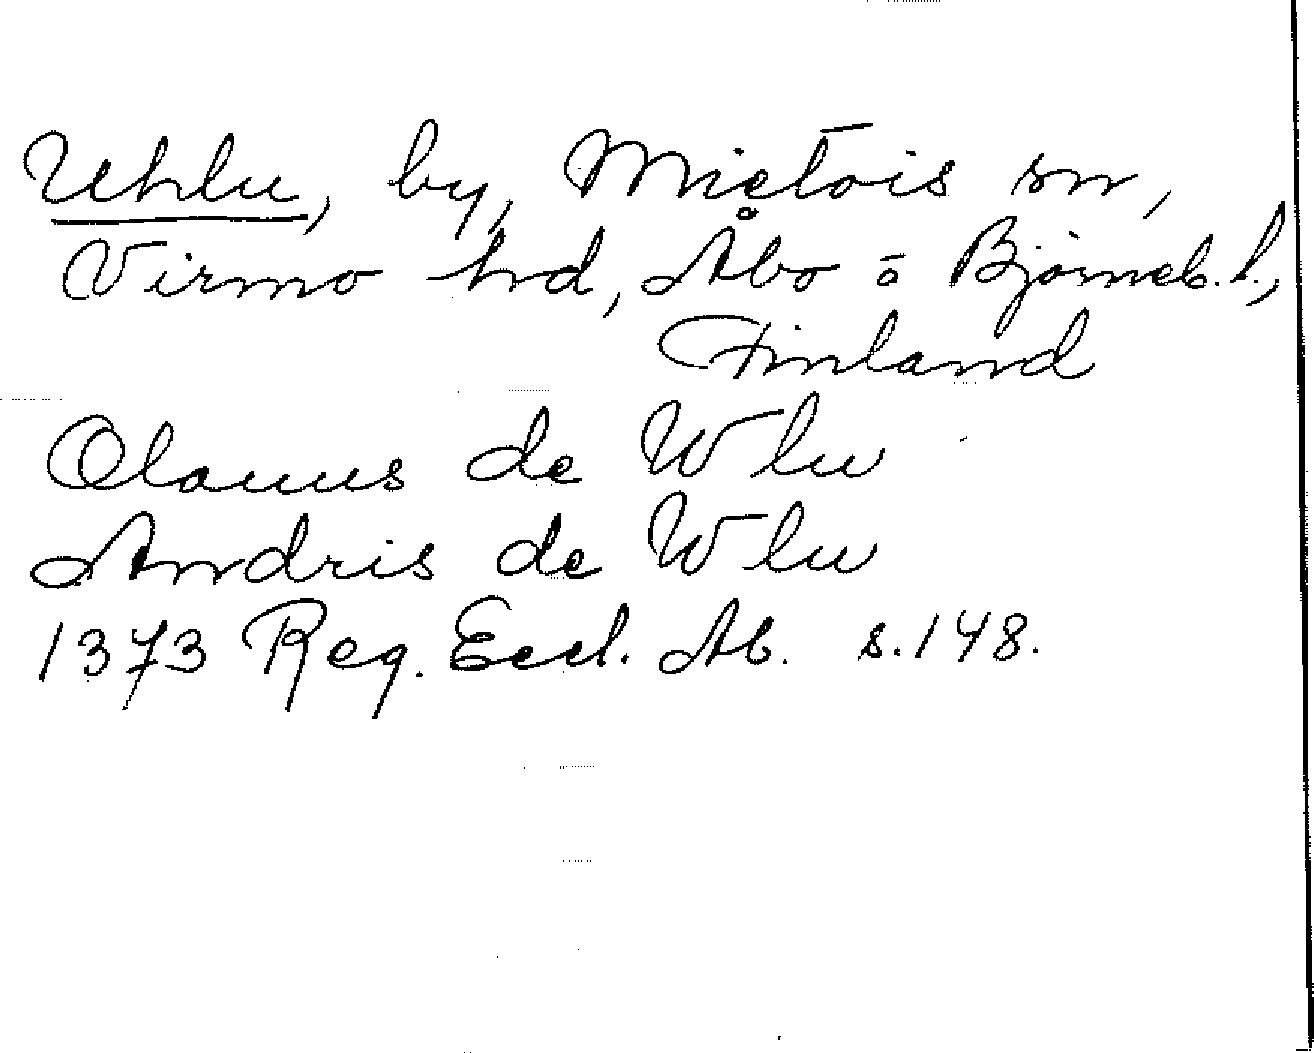 Uhlu, by, Mietois sn,
Virmo hd, Åbo o Björneb. l.,
Finland
Olauus de Wlu
Andris de Wlu
1373 Reg. Eccl. Ab. s. 148.